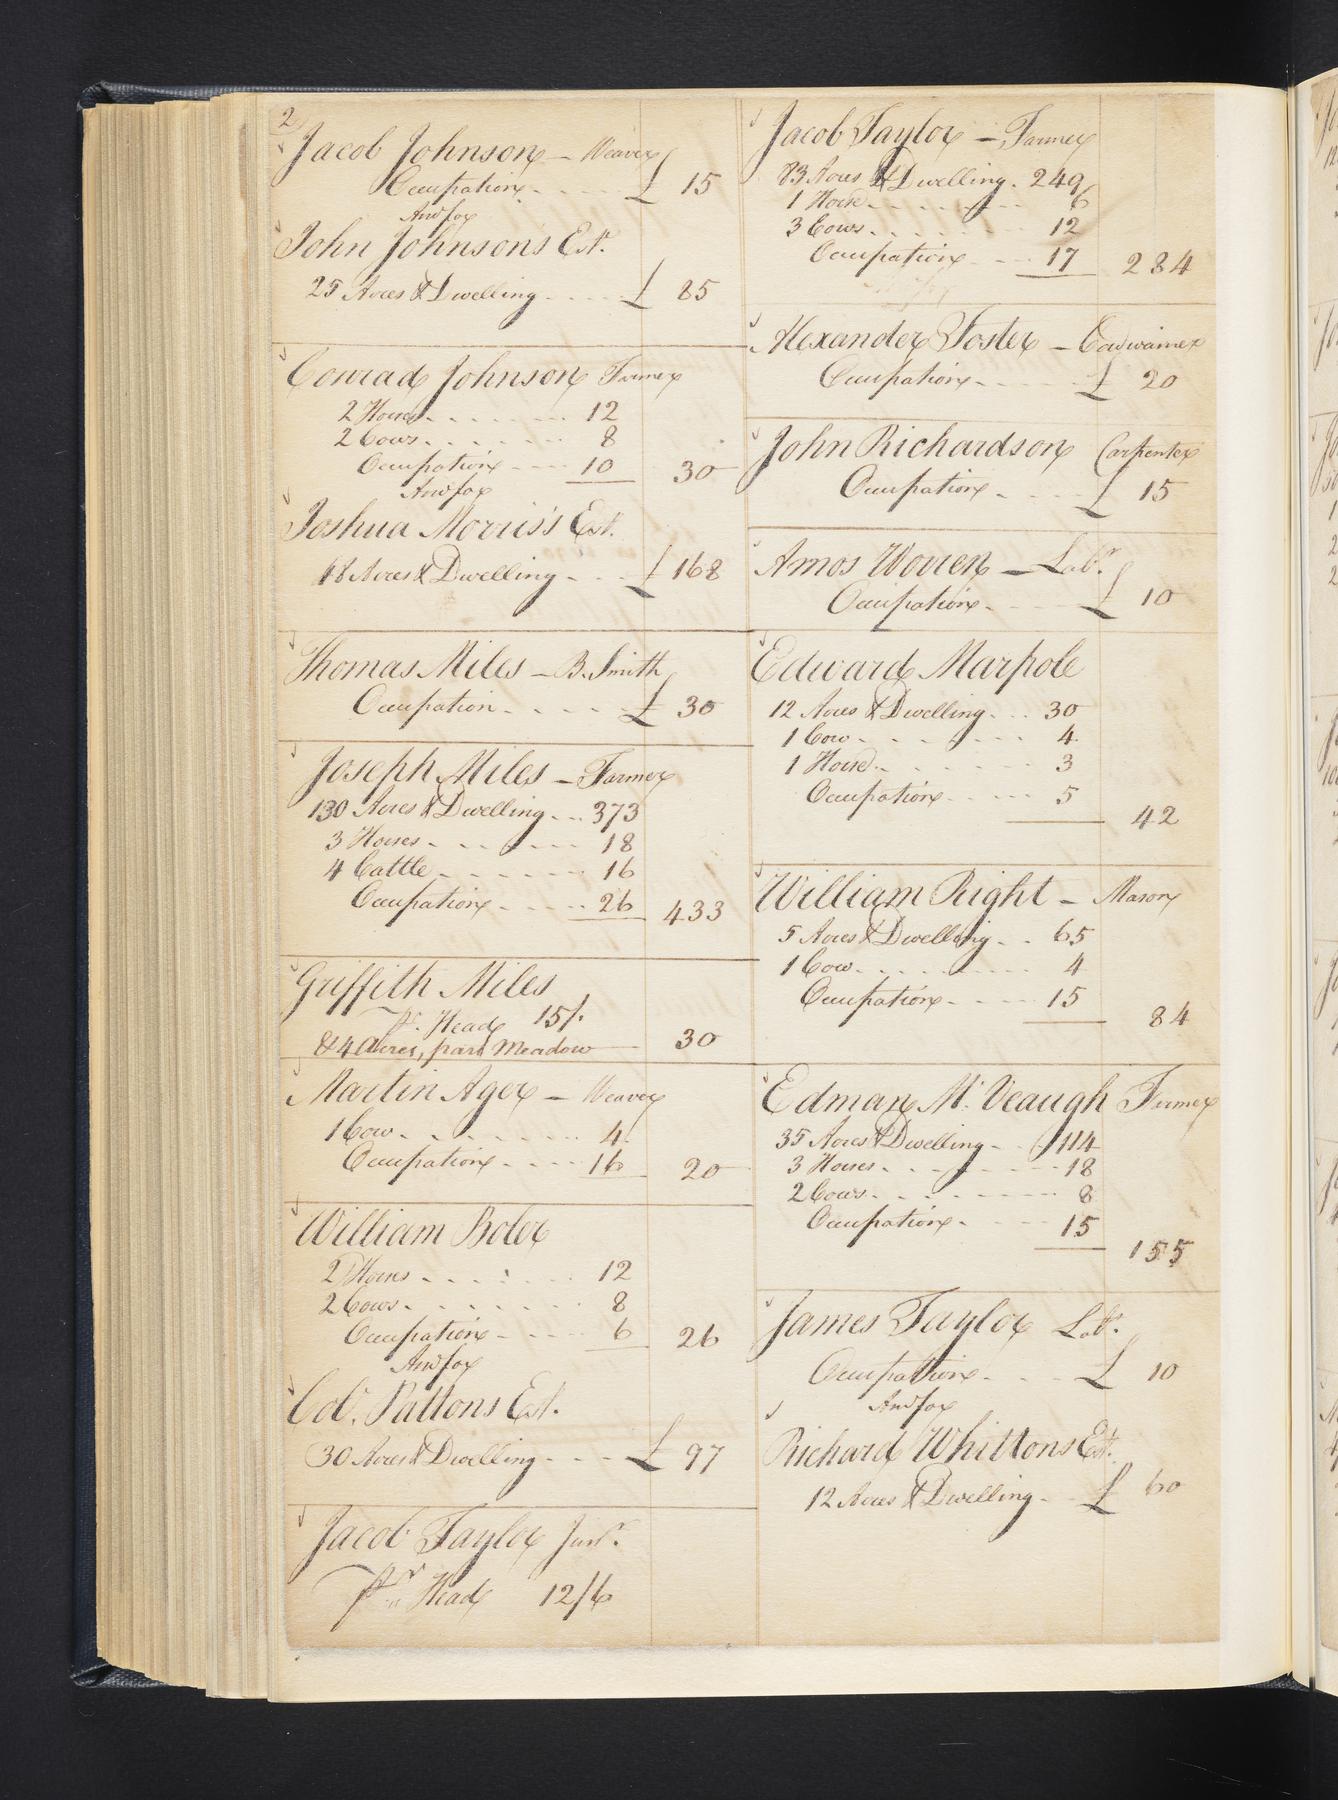 2
Jacob Johnson - Weaver
Occupation £ 15
And for
John Johnsons Est.
25 Acres & Dwelling £ 85
Conrad Johnson Farmer
2 Horses 12
2 Cows 8
Occupation 10 30
And for
Joshua Morris's Est.
48 Acres & Dwelling £ 168
Thomas Miles - B. Smith
Occupation £ 30
Joseph Miles - Farmer
130 Acres & Dwelling 373
3 Horses 18
4 Cattle 16
Occupation 26 433
Griffith Miles
pr. Head 15/.
& 4 Acres, part Meadow 30
Martin Ager - Weaver
1 Cow 4
Occupation 16 20
William Boler
2 Horses 12
2 Cows 8
Occupation 6 26
And for
Col. Pattons Est.
30 Acres & Dwelling £ 97
Jacob Taylor Junr.
pr Head 12/6
Jacob Taylor - Farmer
83 Acres & Dwelling 249
1 Horse 6
3 Cows 12
Occupation 17 284
Alexander Foster - Cordwainer
Occupation £ 20
John Richardson Carpenter
Occupation £ 15
Amos Worren - Labr.
Occupation £ 10
Edward Marpole
12 Acres & Dwelling 30
1 Cow 4
1 Horse 3
Occupation 5
42
William Right - Mason
5 Acres & Dwelling 65
1 Cow 4
Occupation 15
84
Edman Mc. Veaugh Farmer
35 Acres & Dwelling 114
3 Horses 18
2 Cows 8
Occupation 15
155
James Taylor Labr.
Occupation £ 10
And for
Richard Whittons Est.
12 Acres & Dwelling £ 60